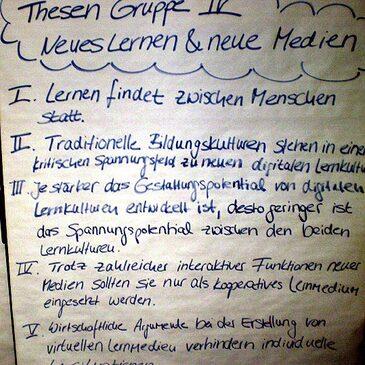 Thesen Gruppe IV
Neues Lernen & neue Medien
I. Lernen findet zwischen Menschen
statt.
II. Traditionelle Bildungskulturen stehen in einem
kritischen Spannungsfeld zu neuen digitalen Lernkultu
III Je stärker das Gestaltungspotential von digitalen
Lernkulturen entwickelt ist, desto geringer ist
das Spannungspotential zwischen den beiden
Lernkulturen.
IV. Trotz zahlreicher interaktiver Funktionen neuer
Medien sollten sie nur als kooperatives Lernmedium
eingesetzt werden.
V Wirtschaftliche Argumente bei der Erstellung von
virtuellen Lernmedien verhindern individuelle